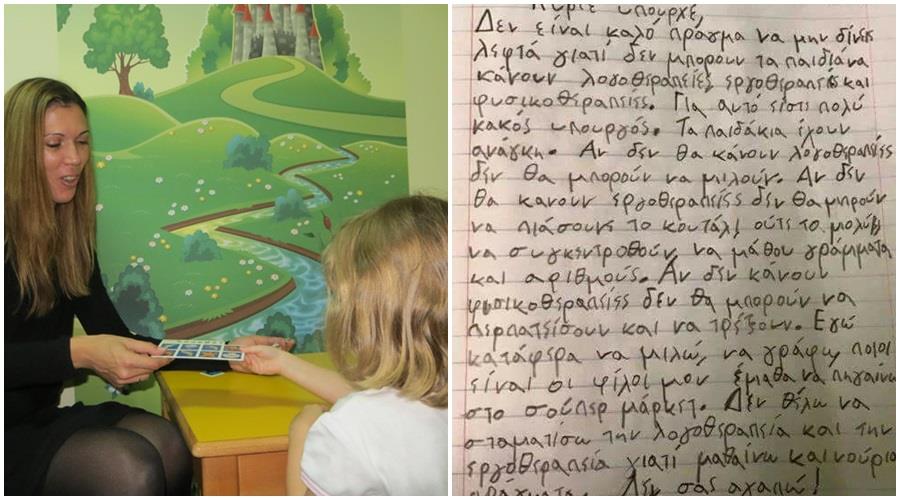 Κύριε υπουργέ,
Δεν είναι καλό πράγμα να μην δίνεις
λεφτά γιατί δεν μπορουν τα παιδιά να
κάνουν λογοθεραπείες, εργοθεραπείες και
φυσικοθεραπείες. Για αυτό είστε πολύ
κακός υπουργός. Τα παιδάκια έχουν
ανάγκη. Αν δεν θα κάνουν λογοθεραπείες
δεν θα μπορούν να μιλούν. Αν δεν
θα κανουν εργοθεραπείες δεν θα μπρούν
να πιάσουνε το κουτάλι ούτε το μολύβι
να συγκεντροθούν να μάθου γράμματα
και αριθμούς. Αν δεν κάνουν
φυσικοθεραπείες δεν θα μπορούν να
περπατείσουν και να τρέξουν. Εγώ
κατάφερα να μιλώ, να γράφω, ποιοι
είναι οι φίλοι μου έμαθα να πηγαίνω
στο σούπερ μάρκετ. Δεν θέλω να
σταματίσω την λογοθεραπεία και την
εργοθεραπεία γιατί μαθαίνω καινούρια
πράγματα. Δεν σας αγαπώ!